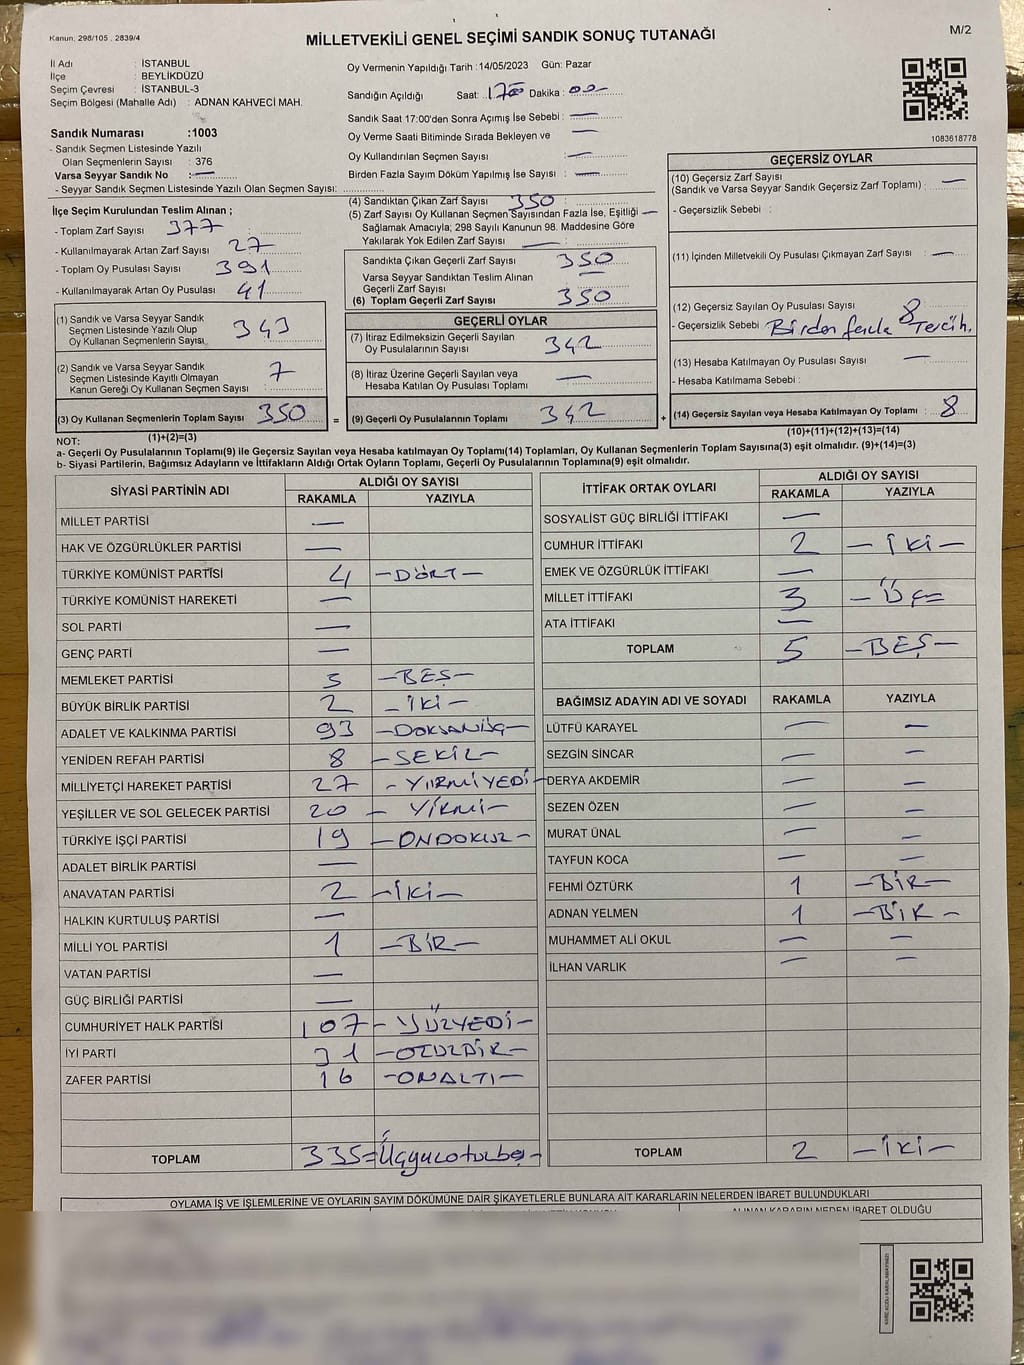 Kanun: 298/105 , 2839/4
MİLLETVEKİLİ GENEL SEÇİMİ SANDIK SONUÇ TUTANAĞI
M/2
İl Adı : İSTANBUL
İlçe : BEYLİKDÜZÜ
Seçim Çevresi : İSTANBUL-3
Seçim Bölgesi (Mahalle Adı) : ADNAN KAHVECİ MAH.
Sandık Numarası :1003
- Sandık Seçmen Listesinde Yazılı
Olan Seçmenlerin Sayısı : 376
Varsa Seyyar Sandık No : —
- Seyyar Sandık Seçmen Listesinde Yazılı Olan Seçmen Sayısı:
Oy Vermenin Yapıldığı Tarih :14/05/2023 Gün: Pazar
Sandığın Açıldığı Saat: 17 00 Dakika : 00
Sandık Saat 17:00'den Sonra Açımış İse Sebebi : —
Oy Verme Saati Bitiminde Sırada Bekleyen ve —
Oy Kullandırılan Seçmen Sayısı : —
Birden Fazla Sayım Döküm Yapılmış İse Sayısı : —
1083618778
İlçe Seçim Kurulundan Teslim Alınan ;
- Toplam Zarf Sayısı : 377
- Kullanılmayarak Artan Zarf Sayısı : 27
- Toplam Oy Pusulası Sayısı : 391
- Kullanılmayarak Artan Oy Pusulası : 41
(1) Sandık ve Varsa Seyyar Sandık
Seçmen Listesinde Yazılı Olup
Oy Kullanan Seçmenlerin Sayısı : 343
(2) Sandık ve Varsa Seyyar Sandık
Seçmen Listesinde Kayıtlı Olmayan
Kanun Gereği Oy Kullanan Seçmen Sayısı : 7
(3) Oy Kullanan Seçmenlerin Toplam Sayısı : 350 =
(1)+(2)=(3)
(4) Sandıktan Çıkan Zarf Sayısı : 350
(5) Zarf Sayısı Oy Kullanan Seçmen Sayısından Fazla İse, Eşitliği —
Sağlamak Amacıyla; 298 Sayılı Kanunun 98. Maddesine Göre
Yakılarak Yok Edilen Zarf Sayısı : —
Sandıkta Çıkan Geçerli Zarf Sayısı : 350
Varsa Seyyar Sandıktan Teslim Alınan —
Geçerli Zarf Sayısı :
(6) Toplam Geçerli Zarf Sayısı : 350
GEÇERLİ OYLAR
(7) İtiraz Edilmeksizin Geçerli Sayılan
Oy Pusulalarının Sayısı : 342
(8) İtiraz Üzerine Geçerli Sayılan veya
Hesaba Katılan Oy Pusulası Toplamı : —
(9) Geçerli Oy Pusulalarının Toplamı : 342 +
GEÇERSİZ OYLAR
(10) Geçersiz Zarf Sayısı
(Sandık ve Varsa Seyyar Sandık Geçersiz Zarf Toplamı) : —
- Geçersizlik Sebebi :
(11) İçinden Milletvekili Oy Pusulası Çıkmayan Zarf Sayısı : —
(12) Geçersiz Sayılan Oy Pusulası Sayısı : 8
- Geçersizlik Sebebi : Birden fazla Tercih.
(13) Hesaba Katılmayan Oy Pusulası Sayısı : —
- Hesaba Katılmama Sebebi :
(14) Geçersiz Sayılan veya Hesaba Katılmayan Oy Toplamı : 8
(10)+(11)+(12)+(13)=(14)
NOT:
a- Geçerli Oy Pusulalarının Toplamı(9) ile Geçersiz Sayılan veya Hesaba katılmayan Oy Toplamı(14) Toplamları, Oy Kullanan Seçmenlerin Toplam Sayısına(3) eşit olmalıdır. (9)+(14)=(3)
b- Siyasi Partilerin, Bağımsız Adayların ve İttifakların Aldığı Ortak Oyların Toplamı, Geçerli Oy Pusulalarının Toplamına(9) eşit olmalıdır.
SİYASİ PARTİNİN ADI ALDIĞI OY SAYISI
RAKAMLA YAZIYLA
MİLLET PARTİSİ —
HAK VE ÖZGÜRLÜKLER PARTİSİ —
TÜRKİYE KOMÜNİST PARTİSİ 4 —DÖRT—
TÜRKİYE KOMÜNİST HAREKETİ —
SOL PARTİ —
GENÇ PARTİ —
MEMLEKET PARTİSİ 5 —BEŞ—
BÜYÜK BİRLİK PARTİSİ 2 —İKİ—
ADALET VE KALKINMA PARTİSİ 93 —DOKSANÜÇ—
YENİDEN REFAH PARTİSİ 8 —SEKİZ—
MİLLİYETÇİ HAREKET PARTİSİ 27 —YİRMİYEDİ—
YEŞİLLER VE SOL GELECEK PARTİSİ 20 —YİRMİ—
TÜRKİYE İŞÇİ PARTİSİ 19 —ONDOKUZ—
ADALET BİRLİK PARTİSİ —
ANAVATAN PARTİSİ 2 —İKİ—
HALKIN KURTULUŞ PARTİSİ —
MİLLİ YOL PARTİSİ 1 —BİR—
VATAN PARTİSİ —
GÜÇ BİRLİĞİ PARTİSİ —
CUMHURİYET HALK PARTİSİ 107 —YÜZYEDİ—
İYİ PARTİ 31 —OTUZBİR—
ZAFER PARTİSİ 16 —ONALTI—
TOPLAM 335 =Üçyüzotuzbeş—
İTTİFAK ORTAK OYLARI ALDIĞI OY SAYISI
RAKAMLA YAZIYLA
SOSYALİST GÜÇ BİRLİĞİ İTTİFAKI —
CUMHUR İTTİFAKI 2 —İKİ—
EMEK VE ÖZGÜRLÜK İTTİFAKI —
MİLLET İTTİFAKI 3 —ÜÇ—
ATA İTTİFAKI —
TOPLAM 5 —BEŞ—
BAĞIMSIZ ADAYIN ADI VE SOYADI RAKAMLA YAZIYLA
LÜTFÜ KARAYEL — —
SEZGİN SİNCAR — —
DERYA AKDEMİR — —
SEZEN ÖZEN — —
MURAT ÜNAL — —
TAYFUN KOCA — —
FEHMİ ÖZTÜRK 1 —BİR—
ADNAN YELMEN 1 —BİR—
MUHAMMET ALİ OKUL — —
İLHAN VARLIK — —
TOPLAM 2 —İKİ—
OYLAMA İŞ VE İŞLEMLERİNE VE OYLARIN SAYIM DÖKÜMÜNE DAİR ŞİKAYETLERLE BUNLARA AİT KARARLARIN NELERDEN İBARET BULUNDUKLARI
ALINAN KARARIN NEDEN İBARET OLDUĞU